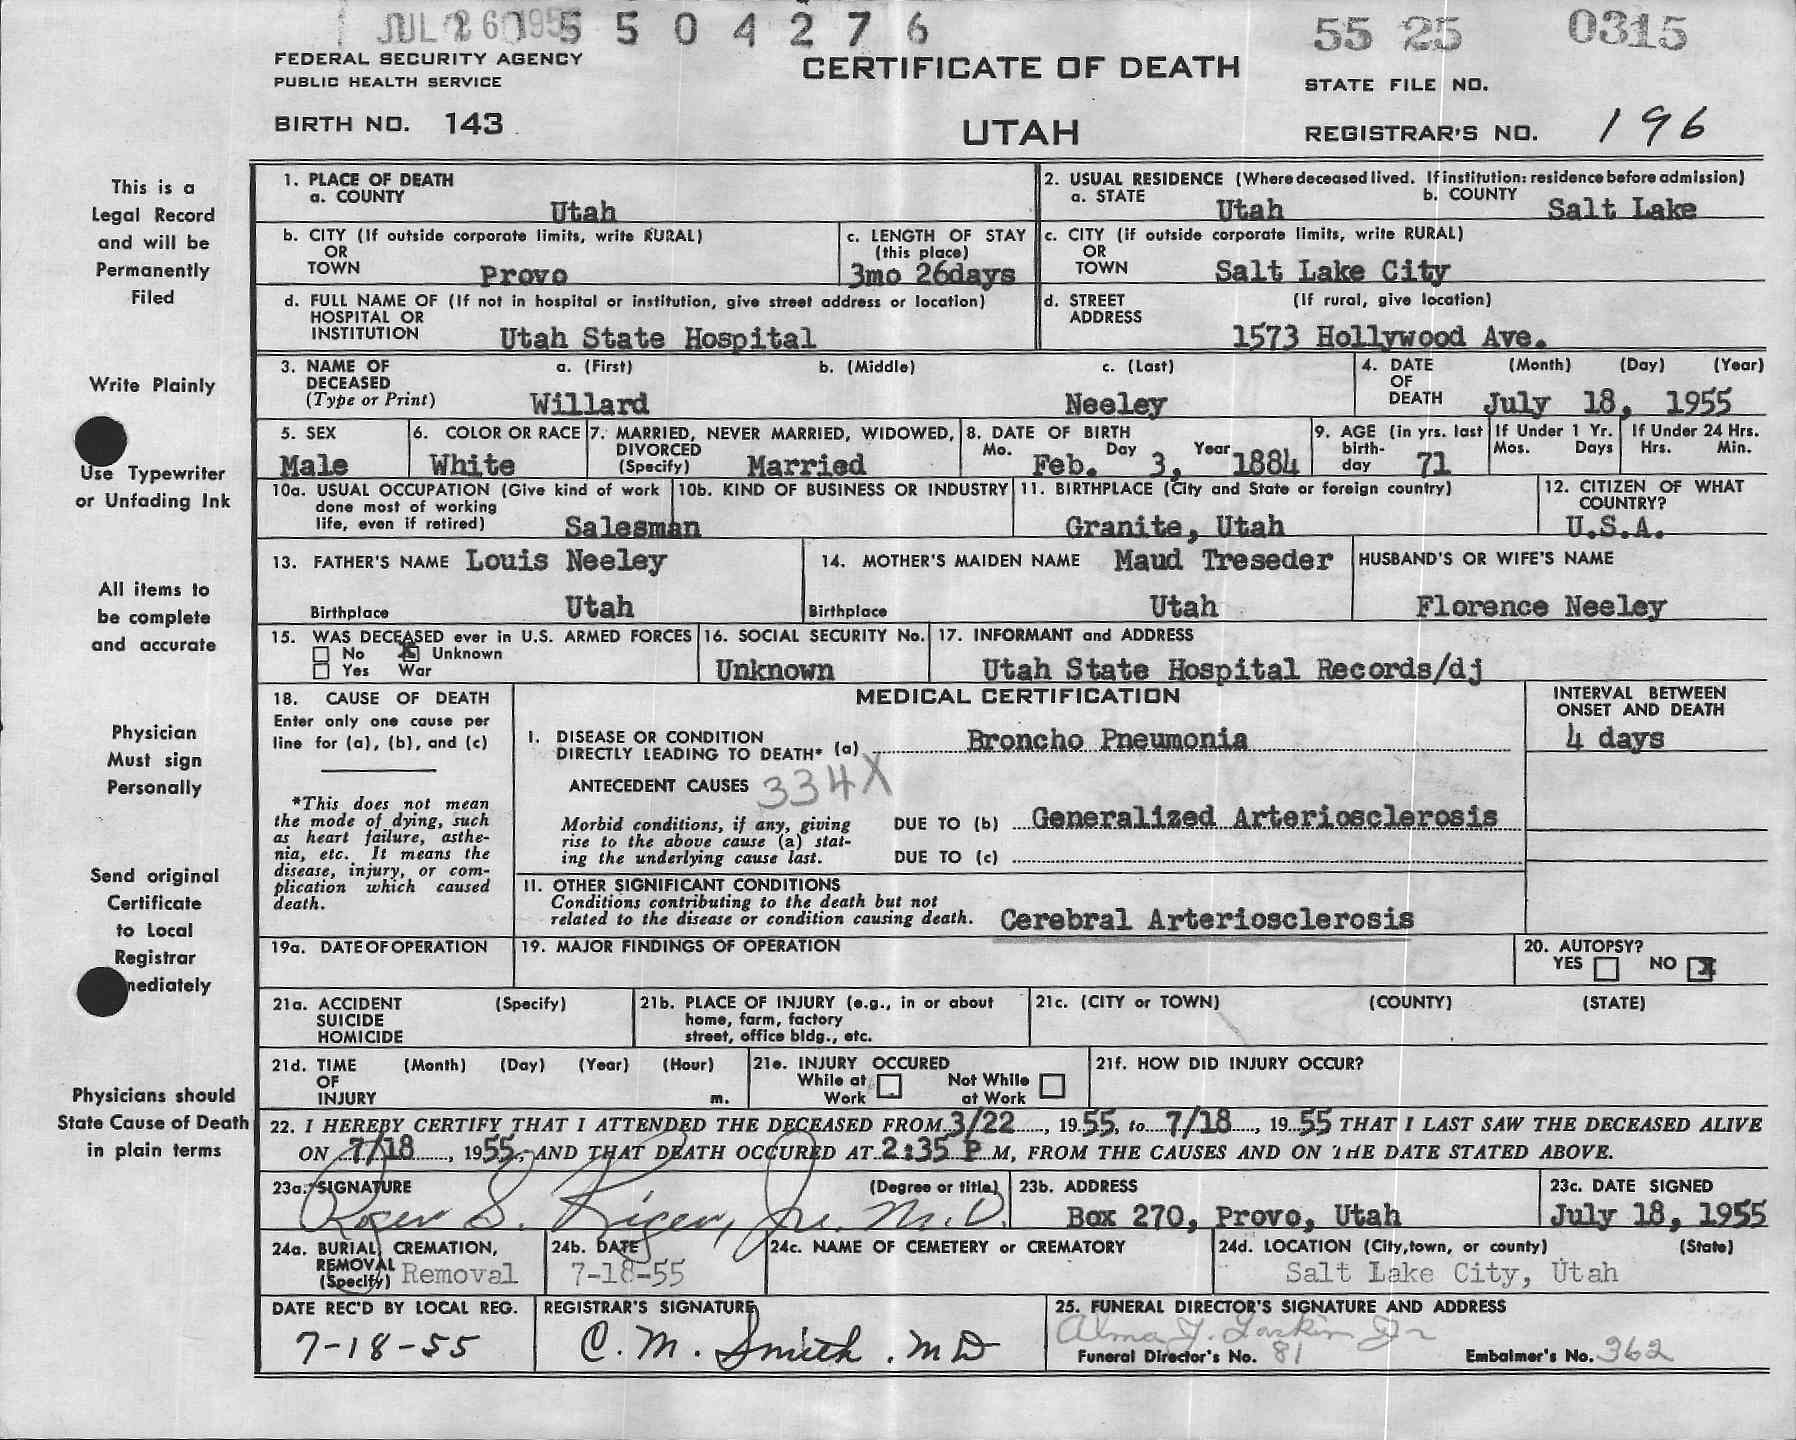 JUL 26 1955 5504276 55 25 0315
FEDERAL SECURITY AGENCY
PUBLIC HEALTH SERVICE
CERTIFICATE OF DEATH
STATE FILE NO.
BIRTH NO. 143
UTAH
REGISTRAR'S NO. 196
This is a
Legal Record
and will be
Permanently
Filed
Write Plainly
Use Typewriter
or Unfading Ink
All items to
be complete
and accurate
Physician
Must sign
Personally
Send original
Certificate
to Local
Registrar
mediately
Physicians should
State Cause of Death
in plain terms
1. PLACE OF DEATH
a. COUNTY Utah
2. USUAL RESIDENCE (Where deceased lived. If institution: residence before admission)
a. STATE Utah b. COUNTY Salt Lake
b. CITY (If outside corporate limits, write RURAL)
OR
TOWN Provo
c. LENGTH OF STAY
(this place)
3mo 26days
c. CITY (if outside corporate limits, write RURAL)
OR
TOWN Salt Lake City
d. FULL NAME OF (If not in hospital or institution, give street address or location)
HOSPITAL OR
INSTITUTION Utah State Hospital
d. STREET (If rural, give location)
ADDRESS
1573 Hollywood Ave.
3. NAME OF a. (First) b. (Middle) c. (Last)
DECEASED
(Type or Print) Willard Neeley
4. DATE (Month) (Day) (Year)
OF
DEATH July 18, 1955
5. SEX
Male
6. COLOR OR RACE
White
7. MARRIED, NEVER MARRIED, WIDOWED,
DIVORCED
(Specify) Married
8. DATE OF BIRTH
Mo. Day Year
Feb. 3, 1884
9. AGE (in yrs. last
birth-
day 71
If Under 1 Yr.
Mos. Days
If Under 24 Hrs.
Hrs. Min.
10a. USUAL OCCUPATION (Give kind of work
done most of working
life, even if retired) Salesman
10b. KIND OF BUSINESS OR INDUSTRY
11. BIRTHPLACE (City and State or foreign country)
Granite, Utah
12. CITIZEN OF WHAT
COUNTRY?
U.S.A.
13. FATHER'S NAME Louis Neeley
Birthplace Utah
14. MOTHER'S MAIDEN NAME Maud Treseder
Birthplace Utah
HUSBAND'S OR WIFE'S NAME
Florence Neeley
15. WAS DECEASED ever in U.S. ARMED FORCES
No X Unknown
Yes War
16. SOCIAL SECURITY No.
Unknown
17. INFORMANT and ADDRESS
Utah State Hospital Records/dj
18. CAUSE OF DEATH
Enter only one cause per
line for (a), (b), and (c)
*This does not mean
the mode of dying, such
as heart failure, asthe-
nia, etc. It means the
disease, injury, or com-
plication which caused
death.
MEDICAL CERTIFICATION
INTERVAL BETWEEN
ONSET AND DEATH
I. DISEASE OR CONDITION
DIRECTLY LEADING TO DEATH* (a) Broncho Pneumonia 4 days
ANTECEDENT CAUSES 334X
Morbid conditions, if any, giving
rise to the above cause (a) stat-
ing the underlying cause last.
DUE TO (b) Generalized Arteriosclerosis
DUE TO (c)
II. OTHER SIGNIFICANT CONDITIONS
Conditions contributing to the death but not
related to the disease or condition causing death. Cerebral Arteriosclerosis
19a. DATE OF OPERATION
19. MAJOR FINDINGS OF OPERATION
20. AUTOPSY?
YES NO X
21a. ACCIDENT (Specify)
SUICIDE
HOMICIDE
21b. PLACE OF INJURY (e.g., in or about
home, farm, factory
street, office bldg., etc.
21c. (CITY or TOWN) (COUNTY) (STATE)
21d. TIME (Month) (Day) (Year) (Hour)
OF
INJURY m.
21e. INJURY OCCURED
While at Work Not While at Work
21f. HOW DID INJURY OCCUR?
22. I HEREBY CERTIFY THAT I ATTENDED THE DECEASED FROM 3/22, 1955, to 7/18, 1955 THAT I LAST SAW THE DECEASED ALIVE
ON 7/18, 1955, AND THAT DEATH OCCURED AT 2:35 P M, FROM THE CAUSES AND ON THE DATE STATED ABOVE.
23a. SIGNATURE (Degree or title)
Roger S. Kiger, Jr. M.D.
23b. ADDRESS
Box 270, Provo, Utah
23c. DATE SIGNED
July 18, 1955
24a. BURIAL, CREMATION,
REMOVAL
(Specify) Removal
24b. DATE
7-18-55
24c. NAME OF CEMETERY or CREMATORY
24d. LOCATION (City, town, or county) (State)
Salt Lake City, Utah
DATE REC'D BY LOCAL REG.
7-18-55
REGISTRAR'S SIGNATURE
C. M. Smith . MD
25. FUNERAL DIRECTOR'S SIGNATURE AND ADDRESS
Alma J. Larkin Jr
Funeral Director's No. 81 Embalmer's No. 362